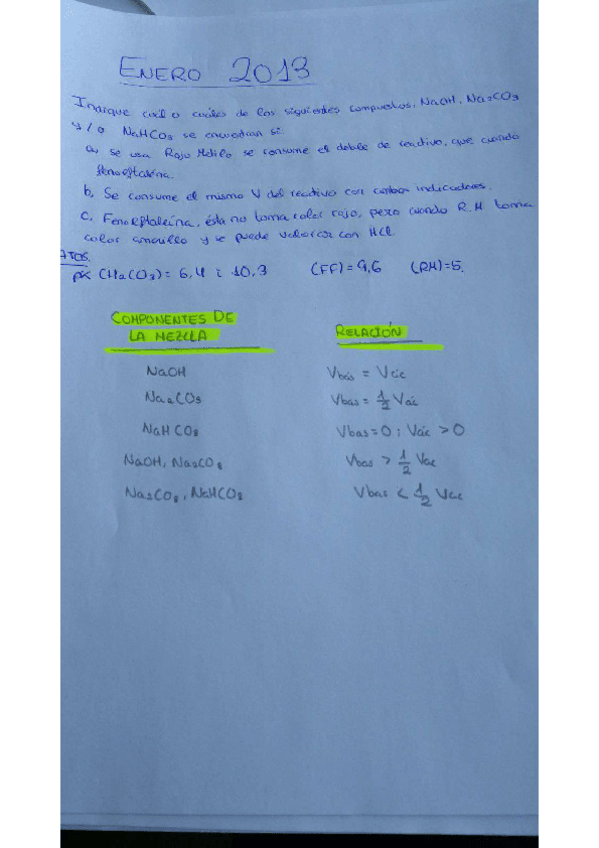 ENERO 2013
Indique cuál o cuáles de los siguientes compuestos, NaOH, Na2CO3
y/o NaHCO3 se encuentran si:
a, se usa Rojo Metilo se consume el doble de reactivo, que cuando
fenolftaleína.
b, Se consume el mismo V del reactivo con ambos indicadores.
c, Fenolftaleína, ésta no toma color rojo, pero cuando R.M toma
color amarillo y se puede valorar con HCl.
ATOS.
pK (H2CO3) = 6,4 i 10,3 (FF) = 9,6 (RM) = 5.
COMPONENTES DE RELACIÓN
LA MEZCLA
NaOH Vbás = Vác
Na2CO3 Vbas = 1/2 Vác
NaHCO3 Vbas = 0 ; Vác > 0
NaOH, Na2CO3 Vbas > 1/2 Vac
Na2CO3, NaHCO3 Vbas < 1/2 Vac